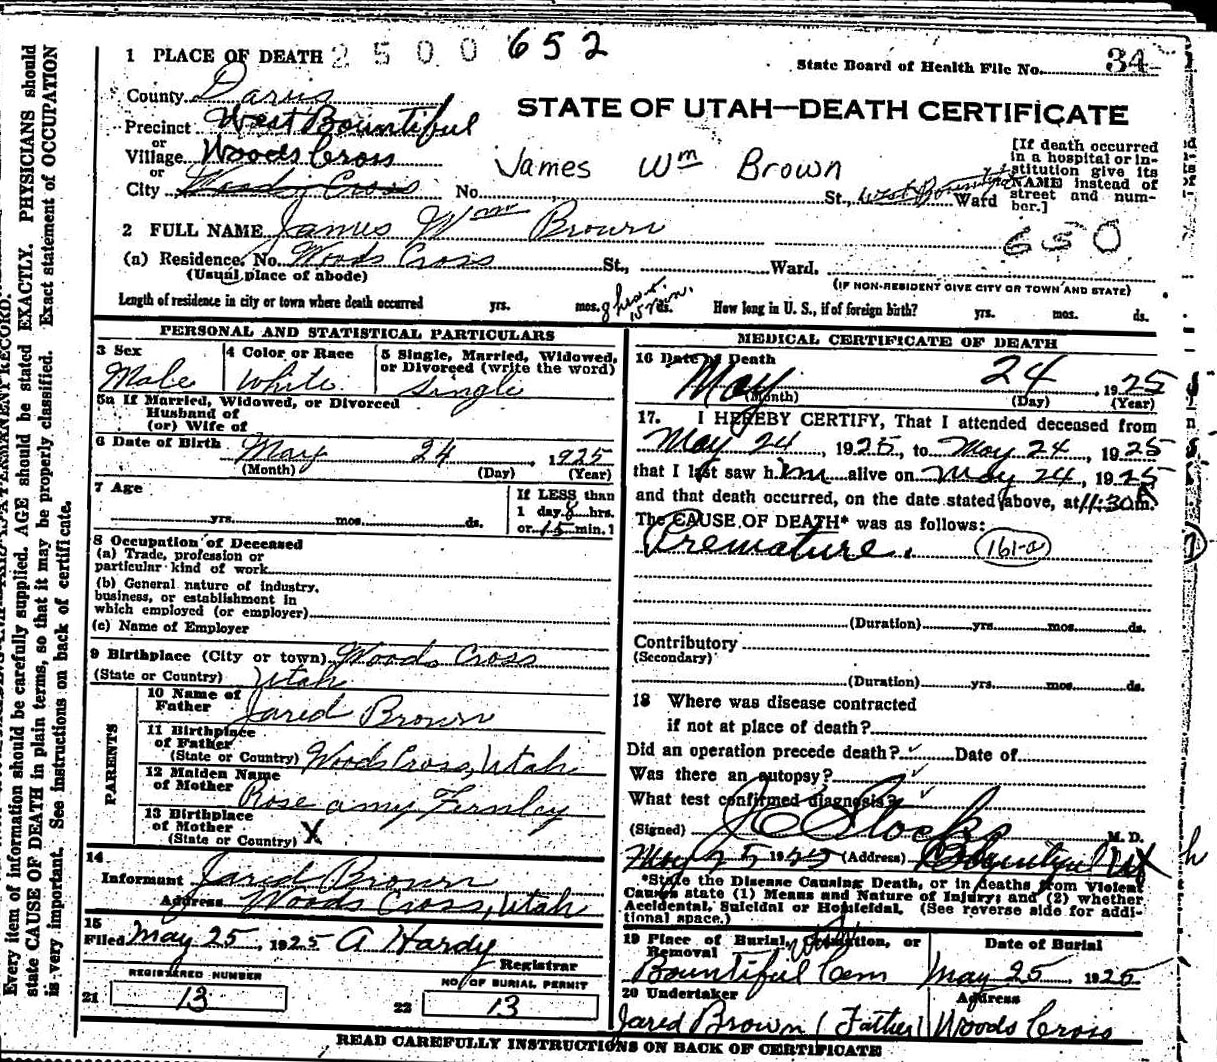 1 PLACE OF DEATH 2500 652
State Board of Health File No. 34
County Davis
STATE OF UTAH—DEATH CERTIFICATE
Precinct West Bountiful
or
Village Woods Cross
or
City Woods Cross No. St., West Bountiful Ward
James Wm Brown
[If death occurred
in a hospital or in-
stitution give its
NAME instead of
street and num-
ber.]
2 FULL NAME James Wm Brown
650
(a) Residence. No. Woods Cross St., Ward.
(Usual place of abode)
(IF NON-RESIDENT GIVE CITY OR TOWN AND STATE)
Length of residence in city or town where death occurred yrs. mos. 8 hrs. 15 min. ds. How long in U. S., if of foreign birth? yrs. mos. ds.
PERSONAL AND STATISTICAL PARTICULARS
3 Sex
Male
4 Color or Race
White
5 Single, Married, Widowed,
or Divorced (write the word)
Single
5a If Married, Widowed, or Divorced
Husband of
(or) Wife of
6 Date of Birth May 24, 1925
(Month) (Day) (Year)
7 Age
yrs. mos. ds.
If LESS than
1 day 8 hrs.
or 15 min.
8 Occupation of Deceased
(a) Trade, profession or
particular kind of work
(b) General nature of industry,
business, or establishment in
which employed (or employer)
(c) Name of Employer
9 Birthplace (City or town) Woods Cross
(State or Country) Utah
PARENTS
10 Name of
Father Jared Brown
11 Birthplace
of Father
(State or Country) Woods Cross, Utah
12 Maiden Name
of Mother Rose amy Fernley
13 Birthplace
of Mother
(State or Country) X
14
Informant Jared Brown
Address Woods Cross, Utah
15
Filed May 25, 1925 A Hardy
Registrar
REGISTERED NUMBER
21 13
NO. OF BURIAL PERMIT
22 13
MEDICAL CERTIFICATE OF DEATH
16 Date of Death
May 24 1925
(Month) (Day) (Year)
17. I HEREBY CERTIFY, That I attended deceased from
May 24, 1925, to May 24, 1925
that I last saw him alive on May 24, 1925
and that death occurred, on the date stated above, at 11:30 A m.
The CAUSE OF DEATH* was as follows:
Premature. 161-a
(Duration) yrs. mos. ds.
Contributory
(Secondary)
(Duration) yrs. mos. ds.
18 Where was disease contracted
if not at place of death?
Did an operation precede death? ✓ Date of
Was there an autopsy? ✓
What test confirmed diagnosis? ✓
(Signed) J C Stocks M. D.
May 25 1925 (Address) Bountiful Ut
*State the Disease Causing Death, or in deaths from Violent
Causes state (1) Means and Nature of Injury; and (2) whether
Accidental, Suicidal or Homicidal. (See reverse side for addi-
tional space.)
19 Place of Burial, Cremation, or
Removal
Bountiful Cem
Date of Burial
May 25 1925
20 Undertaker
Jared Brown (Father)
Address
Woods Cross
READ CAREFULLY INSTRUCTIONS ON BACK OF CERTIFICATE
Every item of information should be carefully supplied. AGE should be stated EXACTLY. PHYSICIANS should
state CAUSE OF DEATH in plain terms, so that it may be properly classified. Exact statement of OCCUPATION
is very important. See instructions on back of certificate.